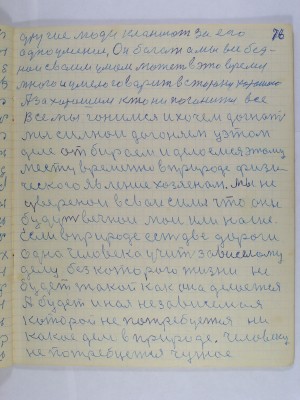 76
другие люди кланяют за его
одно умение, Он богат а мы вси бед-
ной своим умом может в это время
много и умело говорит в сторону хорошего
А за хорошим кто ни погонится все
Все мы гонимся и хочем догнать
мы силкой догоняем у этом
деле отбираем и делаемся этому
месту временно в природе физи-
ческого явление хозяенам. Мы не
уверенои в свои силы что они
будут вечной мои или наше.
Если в природе есть две дороги
одна человека учит зависимому
делу без которого жизни не
будет такой как она делается
А будет иная независимая
которой не потребуется ни
какое дело в природе. Человеку
не потребуется чужое